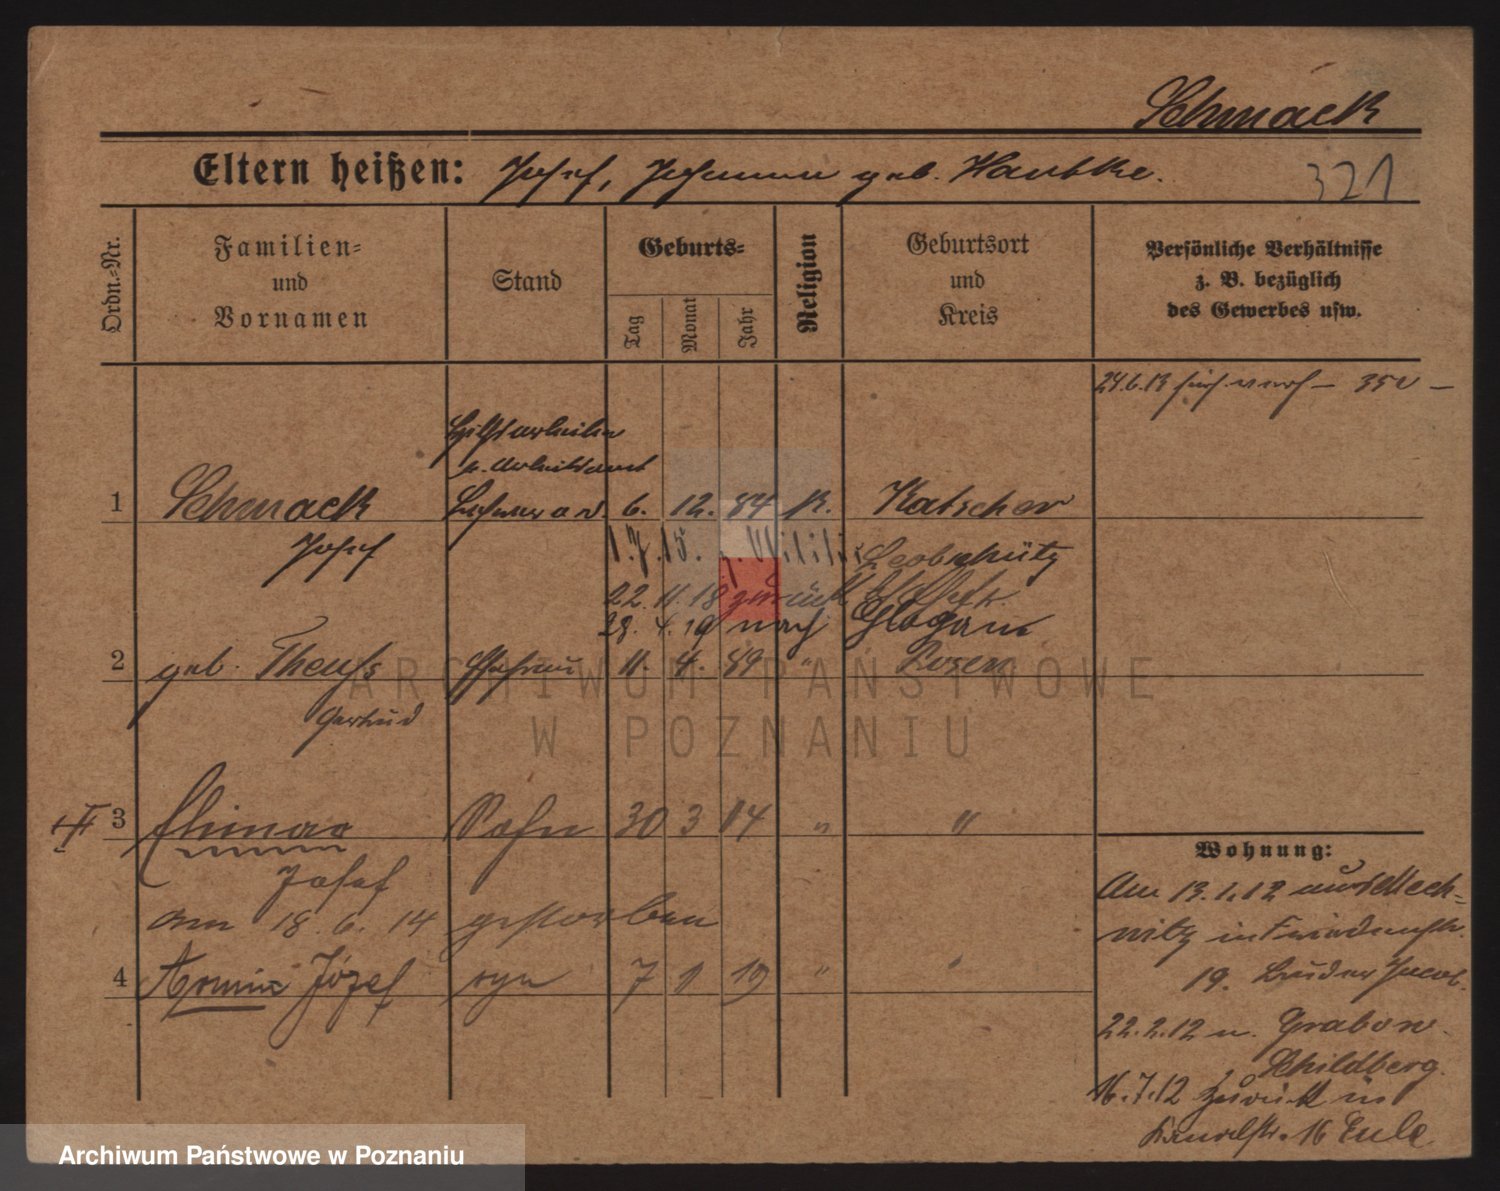 Schmack
Eltern heißen: Josef, Johanna geb. Haubtke.
321
Ordn.-Nr.
Familien-
und
Vornamen
Stand
Geburts-
Tag
Monat
Jahr
Religion
Geburtsort
und
Kreis
Persönliche Verhältnisse
z. B. bezüglich
des Gewerbes usw.
24.6.13
Hilfsarbeiter
Arbeitsamt
1 Schmack 6. 12. 84 K. Katscher
Josef
1.7.15. z. Militär Leobschütz
22. 11. 18 zurück
28. 4. 19 nach Glogau
2 geb. Theuss Ehefrau 11. 4. 89 " Posen
Gertrud
3 Sohn 30 3 14 " "
Josef
am 18. 6. 14 gestorben
4 Józef syn 7 1 19 " "
Wohnung:
Am 13.1.12 aus Mech-
nitz in Friedenstr.
19. Bruder Jacob.
22.2.12 n. Grabow
Schildberg.
16.7.12 zurück in
Kanalstr. 16 Eule
ARCHIWUM PAŃSTWOWE
W POZNANIU
Archiwum Państwowe w Poznaniu